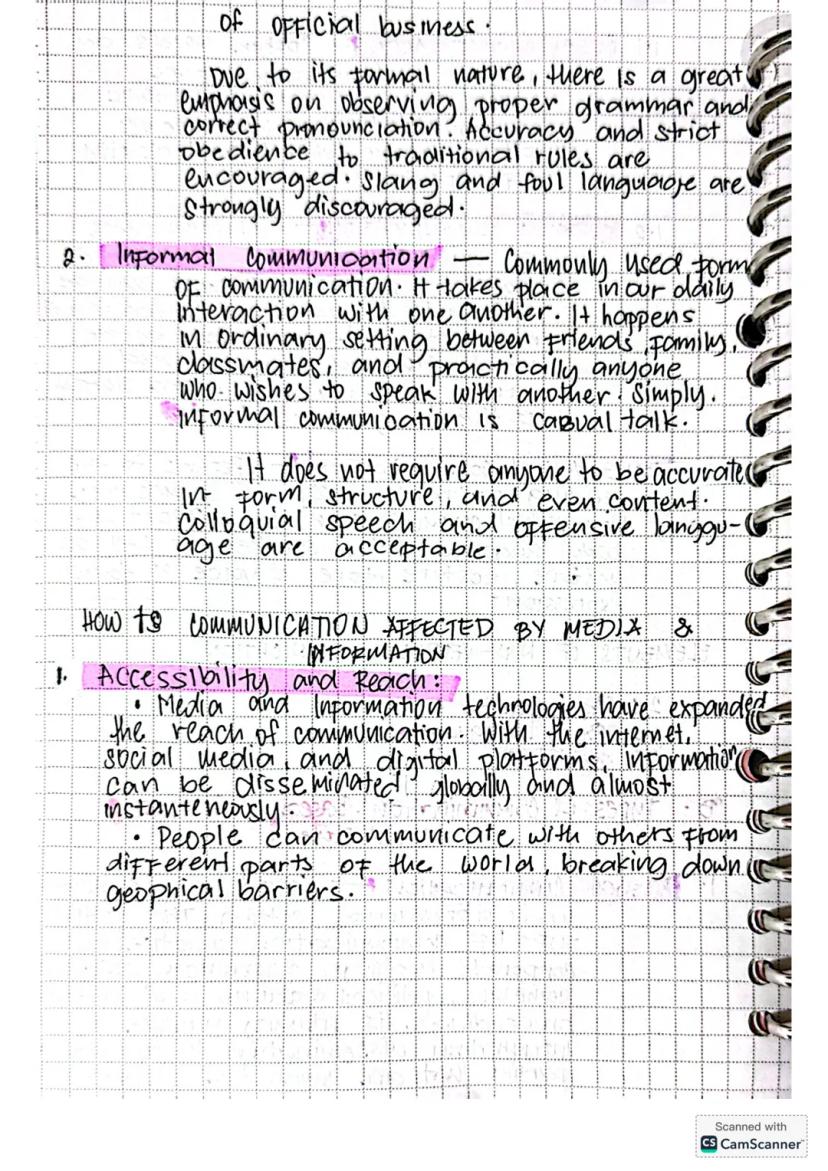 of official business.
Due to its formal nature, there is a great
emphasis on observing proper grammar and
correct pronounciation. Accuracy and strict
obedience to traditional rules are
encouraged. Slang and foul language are
strongly discouraged.
2. Informal Communication — Commonly used form
of communication. It takes place in our daily
interaction with one another. It happens
in ordinary setting between friends, family,
classmates, and practically anyone
who wishes to speak with another. Simply.
informal communication is casual talk.
It does not require anyone to be accurate
in form, structure, and even content.
Colloquial speech and offensive langgu-
age are acceptable.
HOW IS COMMUNICATION AFFECTED BY MEDIA &
INFORMATION
1. Accessibility and Reach:
• Media and Information technologies have expanded
the reach of communication. With the internet,
social media, and digital platforms, Information
can be disseminated globally and almost
instanteneously.
• People can communicate with others from
different parts of the world, breaking down
geophical barriers.
Scanned with
CS CamScanner